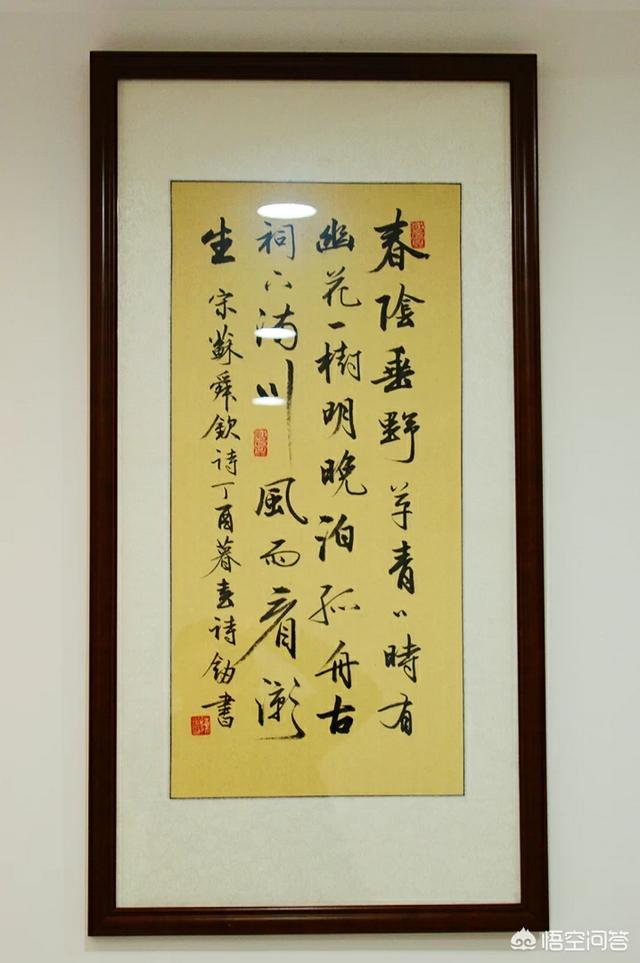 春陰垂野草青〻時有
幽花一樹明晚泊孤舟古
祠下满川風雨看潮
生 宋蘇舜欽诗丁酉暮春诗書
悟空问答